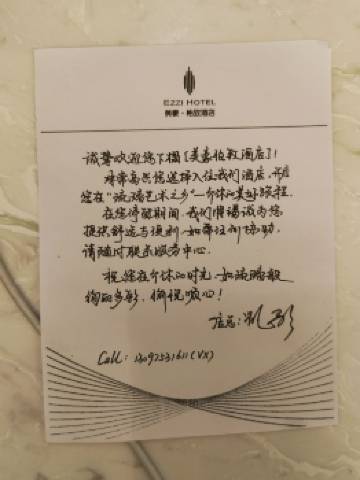 EZZI HOTEL
美豪·怡致酒店
诚挚欢迎您下榻[美豪怡致酒店]!
非常高兴您选择入住我们酒店,开启
您在“琉璃艺术之乡”-介休的美好旅程.
在您停留期间,我们将竭诚为您
提供舒适与便利,如有任何协助,
请随时联系服务中心.
祝您在介休的时光,如琉璃般
绚丽多彩,愉悦顺心!
店总:
Call: 13092531611(VX)